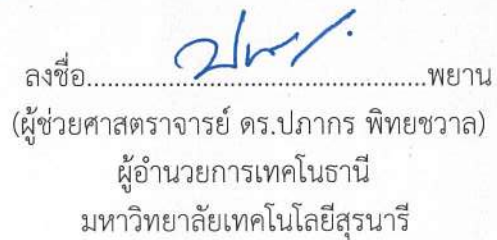 ลงชื่อ..............................................พยาน
(ผู้ช่วยศาสตราจารย์ ดร.ปภากร พิทยชวาล)
ผู้อำนวยการเทคโนธานี
มหาวิทยาลัยเทคโนโลยีสุรนารี